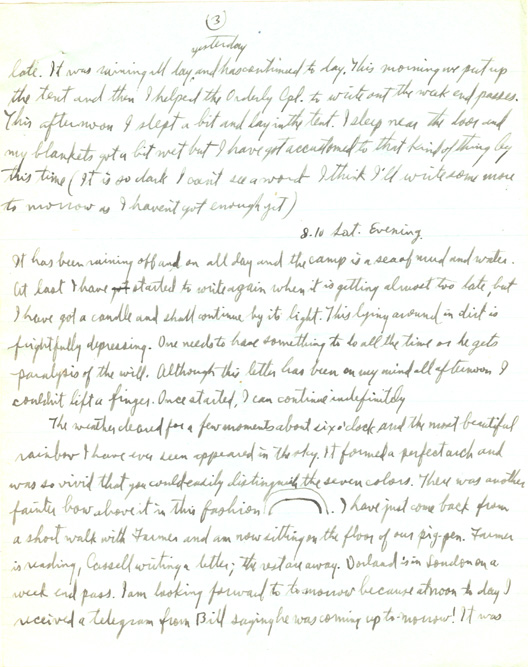 (3)
yesterday
late. It was raining all day and has continued to day. This morning we put up
the tent and then I helped the Orderly Cpl. to write out the week end passes.
This afternoon I slept a bit and lay in the tent. I sleep near the door and
my blankets got a bit wet but I have got accustomed to that kind of thing by
this time (It is so dark I can't see a word I think I'll write some more
to morrow as I haven't got enough yet)
8.10 Sat. Evening.
It has been raining off and on all day and the camp is a sea of mud and water.
At last I have got started to write again when it is getting almost too late, but
I have got a candle and shall continue by its light. This lying around in dirt is
frightfully depressing. One needs to have something to do all the time or he gets
paralysis of the will. Although this letter has been on my mind all afternoon I
couldn't lift a finger. Once started, I can continue indefinitely
The weather cleared for a few moments about six o'clock and the most beautiful
rainbow I have ever seen appeared in the sky. It formed a perfect arch and
was so vivid that you could easily distinguish the seven colors. There was another
fainter bow above it in this fashion . I have just come back from
a short walk with Farmer and am now sitting on the floor of our pig-pen. Farmer
is reading, Cassell writing a letter; the rest are away. Dorland is in London on a
week end pass. I am looking forward to to-morrow because at noon to day I
received a telegram from Bill saying he was coming up to-morrow! It was